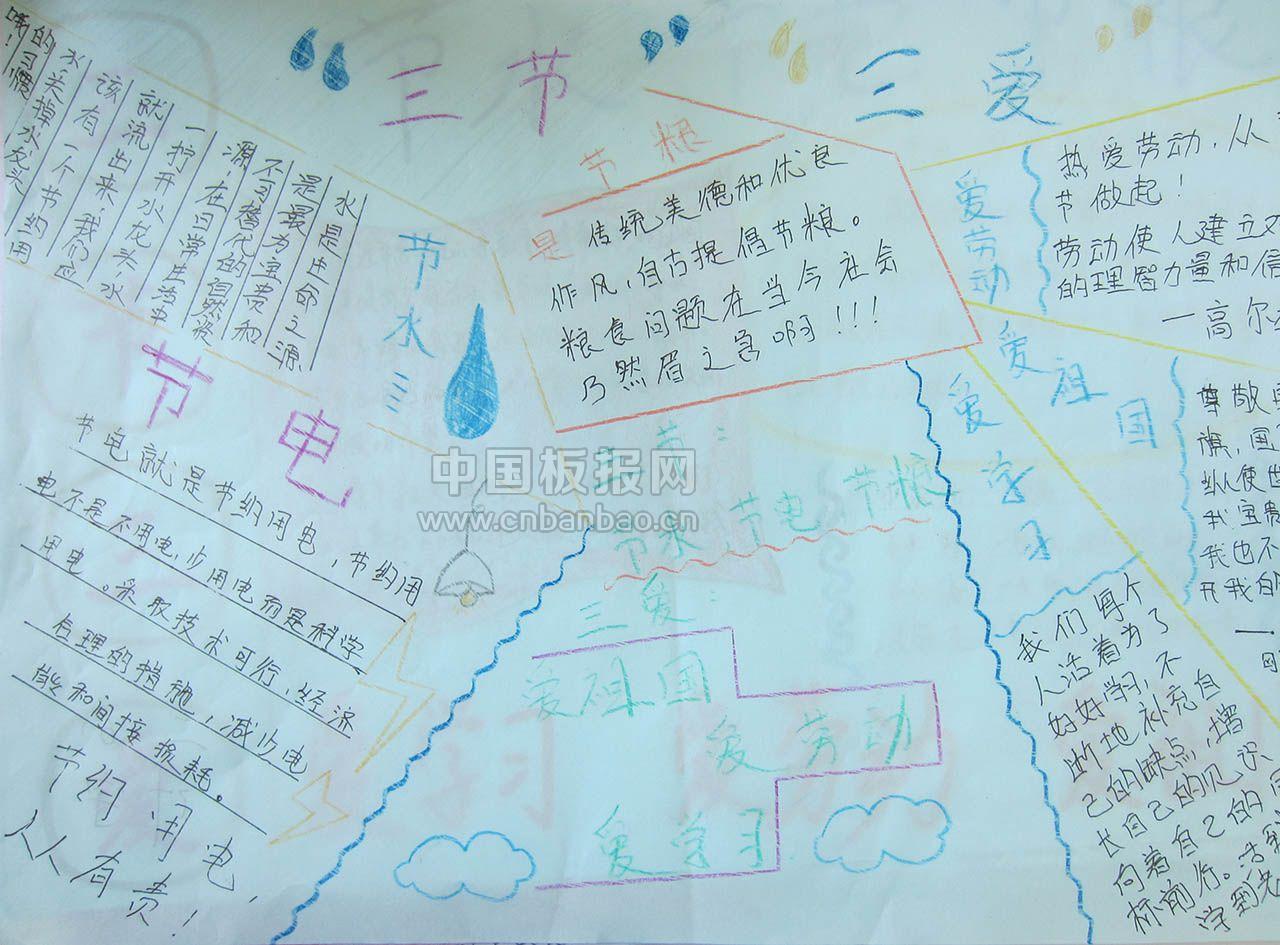 “三节”
“三爱”
水是生命之源
是最为宝贵和
不可替代的自然资
源,在日常生活中
一拧开水龙头,水
就流出来,我们应
该有一个节约用
水关掉水龙头
的习惯
哦!
节水
节粮
是 传统美德和优良
作风,自古提倡节粮。
粮食问题在当今社会
乃然眉之急啊!!!
爱劳动
热爱劳动,从
节做起!
劳动使人建立对
的理智力量和信
—高尔
爱祖国
尊敬
旗,国
纵使世
我宝贵
我也不
开我的
爱学习
我们每个
人活着为了
好好学习,不
断地补充自
己的缺点,增
长自己的见识
向着自己的
标前行。活到
学到老
节电
节电就是节约用电,节约用
电不是不用电,少用电而是科学
用电。采取技术可行,经济
合理的措施,减少电
能和间接损耗。
节约用电
人人有责!
三节:
节水 节电 节粮
三爱:
爱祖国
爱劳动
爱学习
中国板报网
www.cnbanbao.cn